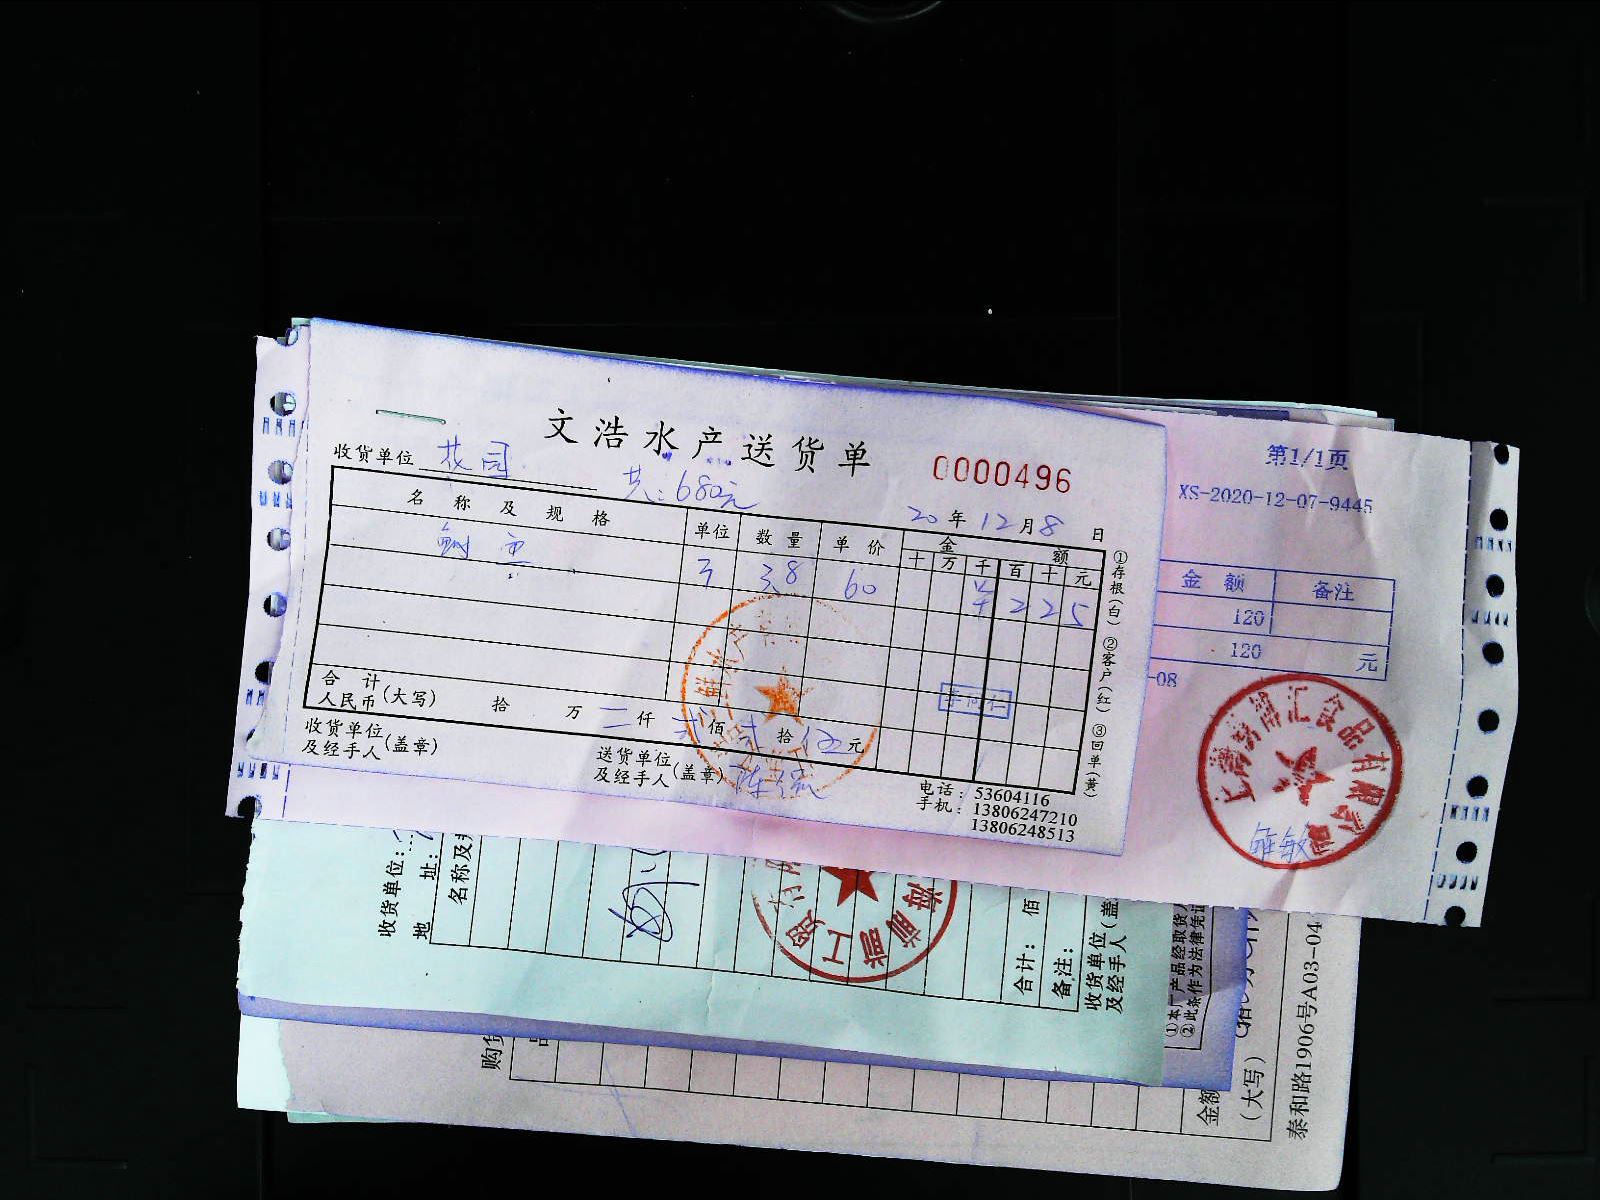 文浩水产送货单
0000496
收货单位 花园
共:680元
20年12月8日
名称及规格 单位 数量 单价 金额
十 万 千 百 十 元
3.8 60 ¥ 2 2 5
合计
人民币(大写) 拾 万 仟 贰佰 拾 伍元
收货单位
及经手人(盖章)
送货单位
及经手人(盖章)
电话: 53604116
手机: 13806247210
13806248513
①存根(白) ②客户(红) ③回单(黄)
第1/1页
XS-2020-12-07-9445
金额 备注
120
120 元
-08
食品有限公司
收货单位:
地址:
名称及规
合计: 佰
备注:
收货单位(盖
及经手人
①本厂产品经收货人
②此条作为法律凭证
购货
品
金额
(大写)
泰和路1906号A03-04